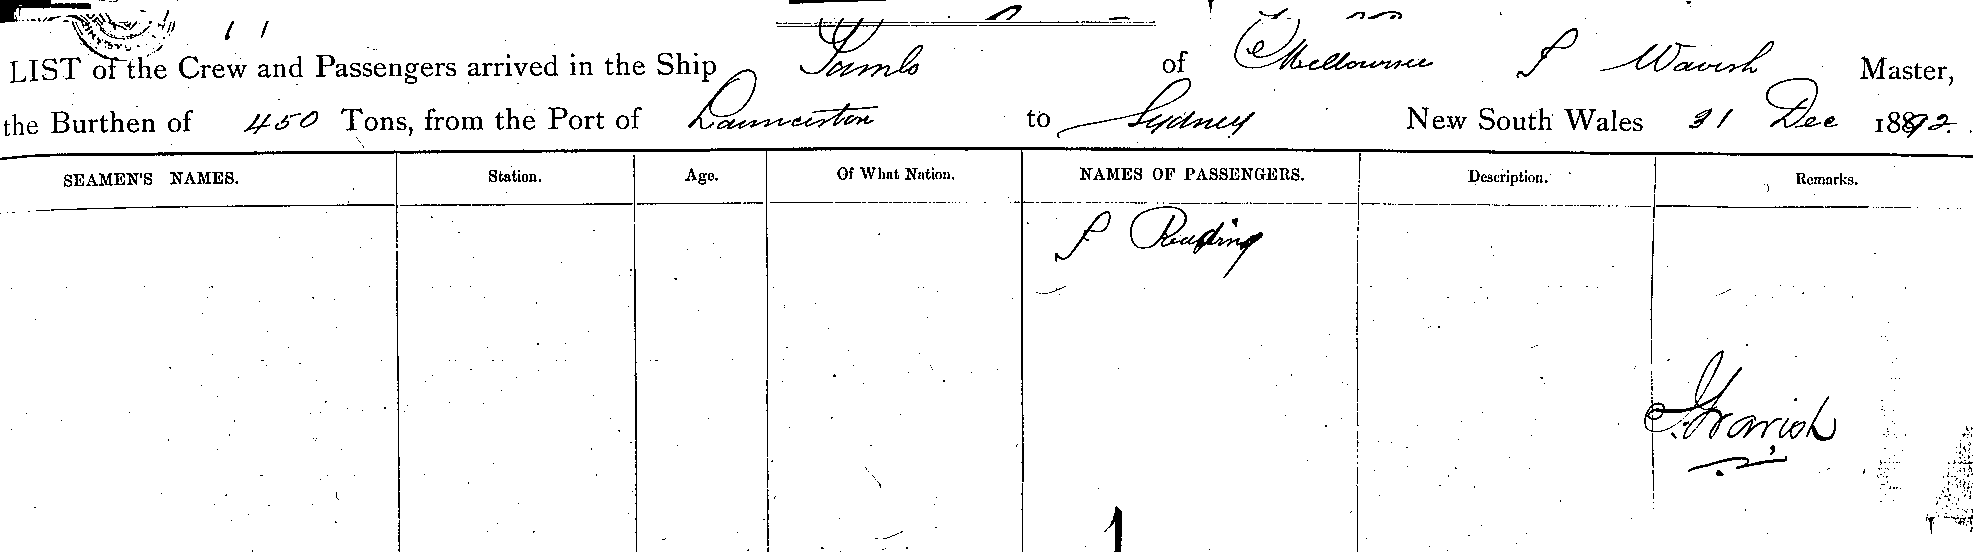 LIST of the Crew and Passengers arrived in the Ship Tambo of Melbourne J Wavish Master,
the Burthen of 450 Tons, from the Port of Launceston to Sydney New South Wales 31 Dec 1892.
SEAMEN'S NAMES. Station. Age. Of What Nation. NAMES OF PASSENGERS. Description. Remarks.
J Reading
J. Wavish